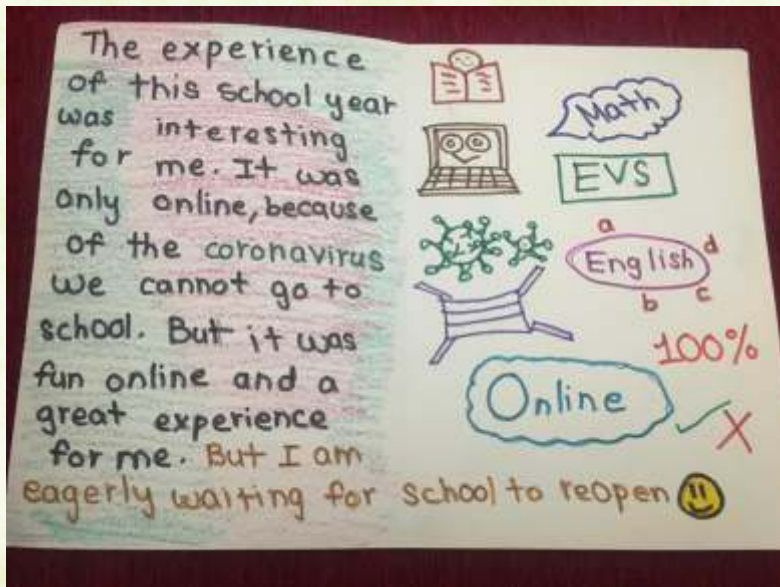 The experience
of this school year
was interesting
for me. It was
only online, because
of the coronavirus
we cannot go to
school. But it was
fun online and a
great experience
for me. But I am
eagerly waiting for school to reopen
Math
EVS
a
d
English
b
c
100%
Online